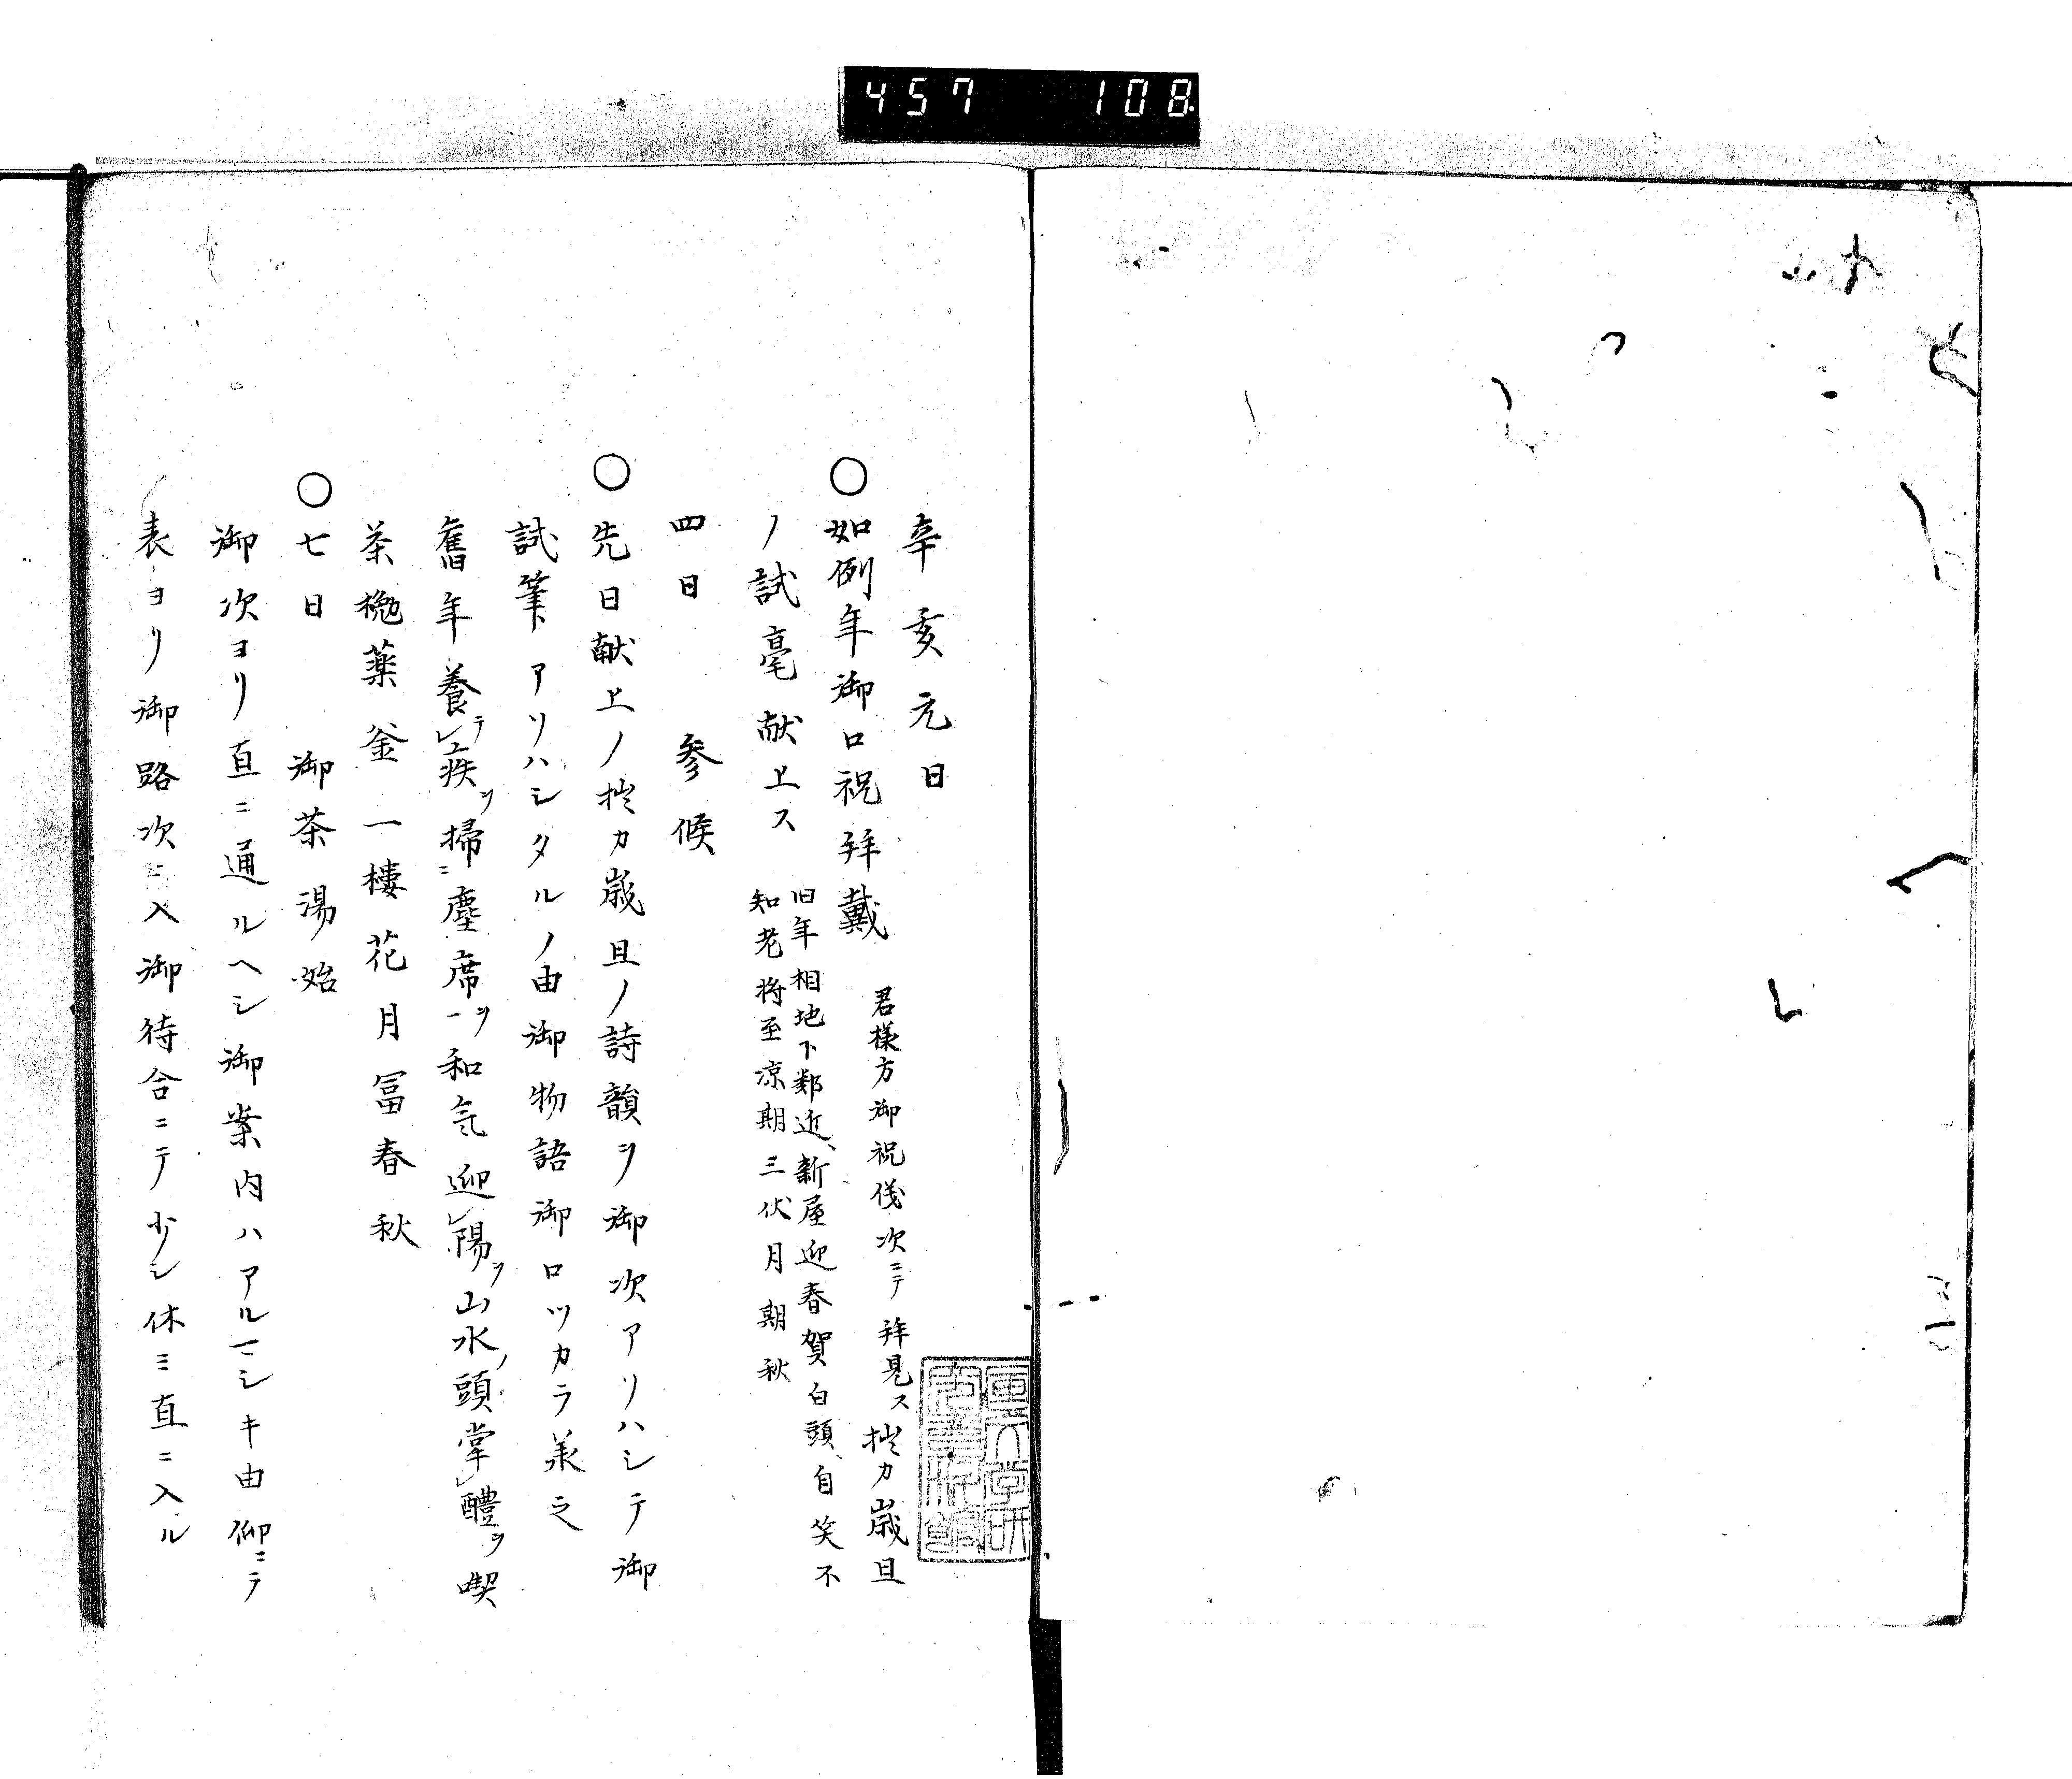 457 108
辛亥元日
○如例年御口祝拝戴 君様方御祝儀次ニテ拝見ス 拙カ歳旦
ノ試毫献上ス 旧年相地下鄰近、新屋迎春賀白頭、自笑不
知老将至凉期三伏月期秋
四日 参候
○先日献上ノ拙カ歳旦ノ詩韻ヲ御次アリハシテ御
試筆アリハシタルノ由御物語御口ツカラ承之
舊年養テレ疾ヲ掃ニ塵席一ヲ和気迎レ陽ヲ山水ノ頭掌レ醴ヲ喫
茶椀薬釜一楼花月冨春秋
○七日 御茶湯始
御次ヨリ直ニ通ルヘシ御案内ハアルマシキ由仰ニテ
表ヨリ御路次ニ入御待合ニテ少シ休ミ直ニ入ル